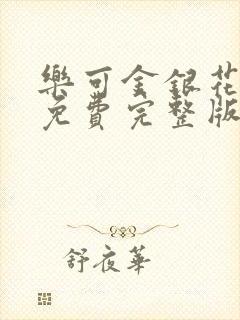 樂可金銀花
免費完整版
舒夜華